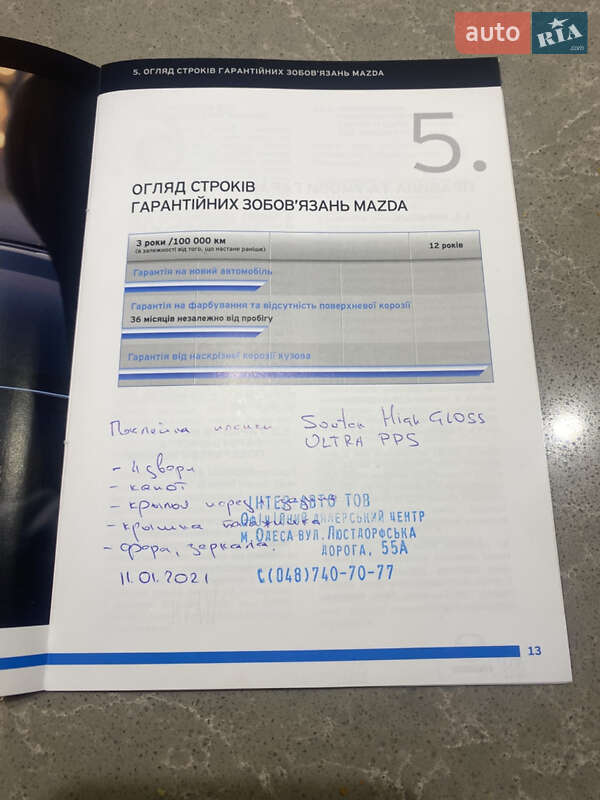 auto RIA .com
5. ОГЛЯД СТРОКІВ ГАРАНТІЙНИХ ЗОБОВ'ЯЗАНЬ MAZDA
5.
ОГЛЯД СТРОКІВ
ГАРАНТІЙНИХ ЗОБОВ'ЯЗАНЬ MAZDA
3 роки /100 000 км
(в залежності від того, що настане раніше)
12 років
Гарантія на новий автомобіль
Гарантія на фарбування та відсутність поверхневої корозії
36 місяців незалежно від пробігу
Гарантія від наскрізної корозії кузова
Поклейка пленки High GLOSS
ULTRA PPS
- 4 двери
- капот
- крылья
- крышка багажника
- фара, зеркала.
11.01.2021
ІНТЕР АВТО ТОВ
Офіційний дилерський центр
м.Одеса вул.Люстдорфська
дорога, 55А
т(048)740-70-77
13